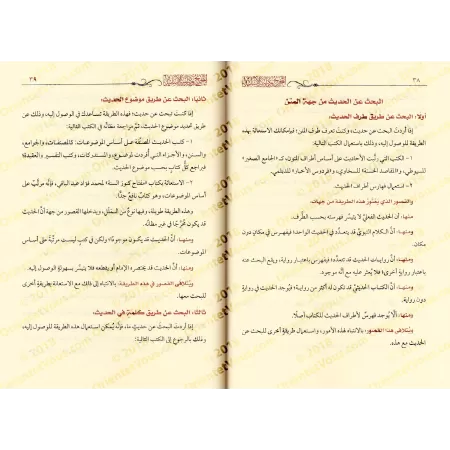 ٣٨
البحث عن الحديث من جهة المتن
أولًا: البحث عن طريق طرف الحديث:
إذا أردتَ البحث عن حديثٍ، وكنتَ تعرف طرفَ المتن؛ فبإمكانك الاستعانة بهذه
الطريقة للوصول إليه، وذلك باستعمال الكتب التالية:
١ - الكتب التي رتَّبت الأحاديث على أساس أطراف المتون، كـ«الجامع الصغير»
للسيوطي، و«المقاصد الحسنة» للسخاوي، و«الفردوس الأخبار» للديلمي.
٢ - استعمال فهارس أطراف الحديث.
والقصور الذي يعتور هذه الطريقة من جهات:
منها: أن الحديث الفعليَّ لا يتيسَّر فهرسته بحسب الطَّرف.
ومنها: أنَّ الكلام النبويَّ قد يتعدَّد في الحديث الواحد؛ فيفهرس في مكانٍ دون
مكان.
ومنها: أنَّ الروايات للحديث قد تتعدَّد، فيفهرس باعتبار رواية، ويقع البحث عنه
باعتبار روايةٍ أخرى؛ فلا يُعثر عليه مع أنَّه موجود.
ومنها: أنَّ الكتاب الحديثيَّ قد تكون له أكثر من رواية؛ فيوجد الحديث في رواية
دون رواية.
ومنها: ألَّا يُوجد فهرسٌ لأطراف الحديث للكتاب أصلًا.
ويُتلافى هذا القصور: بالانتباه لهذه الأمور، واستعمال طريقةٍ أخرى للبحث عن
الحديث مع هذه.
٣٩
ثانيًا: البحث عن طريق موضوع الحديث:
إذا كنتَ تبحث عن حديث؛ فهذه الطريقة تُساعدك في الوصول إليه، وذلك عن
طريق تحديد موضوع الحديث، ثمَّ مراجعة مظانِّه في الكتب التالية:
١ - كتب الحديث المصنَّفة على أساس الموضوعات: كالمصنفات، والجوامع،
والسنن، والأجزاء التي أُفردت لموضوع، والمستدركات، وكتب التفسير، والعقيدة؛
فراجع كلَّ كتابٍ بحسب موضوع الحديث.
٢ - الاستعانة بكتاب «مفتاح كنوز السنة» لمحمد فؤاد عبد الباقي، فإنَّه مرتَّبٌ على
أساس الموضوعات، وهو نافع جدًّا.
وهذه الطريقة طويلة، وفيها نوعٌ من المشقَّة، ويتداخلها القصور من جهة أنَّ الحديث
قد يكون مُخرَّجًا في غير مظانِّه.
ومنها: أنَّ الحديث قد يكون موجودًا؛ ولكن في كتابٍ ليست مرتَّبةً على أساس
الموضوعات.
ومنها: أنَّ الحديث قد يختصره الإمام أو يقطعه فلا يتيسَّر بسهولةٍ الوصول إليه.
ويُتلافى القصور في هذه الطريقة: بالانتباه إلى ذلك مع الاستعانة بطريقةٍ أخرى
للبحث معها.
ثالثًا: البحث عن طريق كلمةٍ في الحديث:
إذا أردتَ البحث عن حديثٍ ما، فإنَّه يُمكن استعمال هذه الطريقة للوصول إليه،
وذلك بالرجوع إلى الكتب التالية: